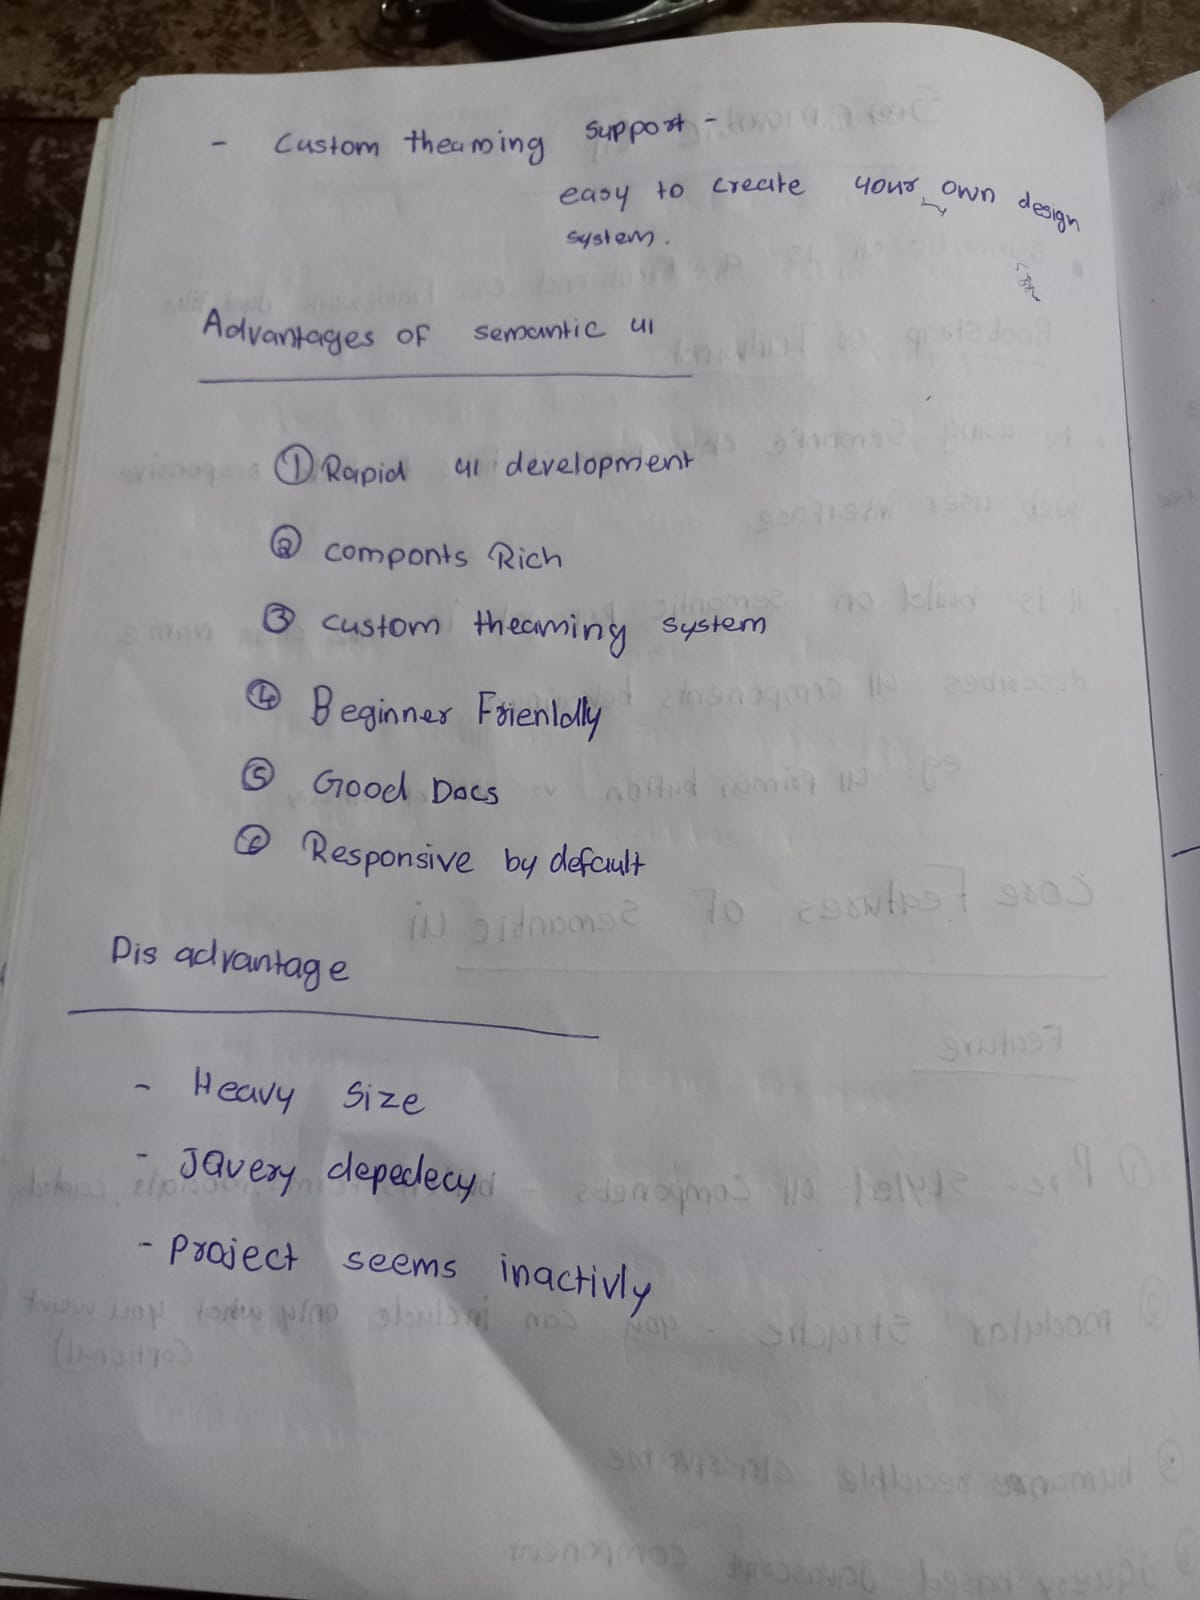 - Custom theaming support -
easy to create your own design
system.
Advantages of semantic ui
① Rapid ui development
② componts Rich
③ custom theaming system
④ Beginner Frienldly
⑤ Good Docs
⑥ Responsive by default
Dis advantage
- Heavy Size
- JQuery depedecy
- Project seems inactivly